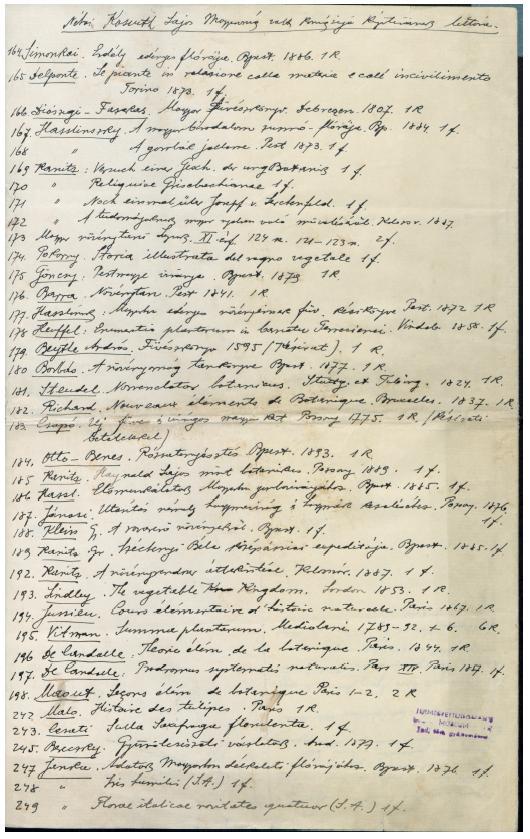 Néhai Kossuth Lajos Magyarország volt kormányzója könyvtárának botan.
164. Simonkai. Erdély edényes flórája. Bpest. 1886. 1 K.
165 Delponte. Le piante in relazione colla materia e coll incivilimento
Torino 1873. 1 f.
166. Diószegi - Fazekas. Magyar Fűvészkönyv. Debreczen. 1807. 1 K
167. Hasslinszky. A magyar birodalom zuzmó-flórája. Bp. 1884. 1 f.
168 " A gombák jelleme. Pest 1873. 1 f.
169 Kanitz: Versuch einer Gesch. der ung Botanik 1 f.
170 " Reliquiae Grisebachianae 1 f.
171 " Noch einmal über Josef v. Lerchenfeld. 1 f.
172 " A tudományoknak magyar nyelven való műveléséről. Kolozsv. 1887.
173 Magyar növénytani Lapok. XI. évf. 124 n. 121-123 n. 2 f.
174. Pokorny. Storia illustrata del regno vegetale 1 f.
175 Gönczy. Pestmegye viránya. Bpest. 1879 1 K.
176. Barra. Növénytan. Pest 1841. 1 K
177. Hasslinsz. Magyarhon edényes növényeinek füv. kézikönyve Pest. 1872 1 K
178 Heuffel. Enumeratio plantarum in banatu Temesiensi. Vindob. 1858. 1 f.
179. Beythe András. Fives könyv 1595 (Kézirat). 1 K.
180 Borbás. A növényország tankönyve Bpest. 1877. 1 K.
181. Steudel. Nomenclator botanicus. Stuttg. et Tübing. 1824. 1 K.
182. Richard. Nouveaux éléments de Botanique. Bruxelles. 1837. 1 K.
183. Csapó. Új füves és virágos magyar kert Posony 1775. 1 K. (Kézirati
betétekkel)
184. Otto - Benes. Rózsatenyésztés Bpest. 1893. 1 K
185 Kanitz. Haynald Lajos mint botanikus. Pozsony 1889. 1 f.
186 Hassl. Előmunkálatok Magyarhon gombavirányához. Bpest. 1885. 1 f.
187. Jánossi. Utasítás Pozsony. 1876.
1 f.
188. Klein G. A rovarevő növényekről. Bpest. 1 f.
189 Kanitz Gr. Széchenyi Béla középázsiai expeditiója. Bpest. 1885. 1 f
192. Kanitz. A növényrendszer áttekintése. Kolozsvár. 1887. 1 f.
193. Lindley. The vegetable Kingdom. London 1853. 1 K.
194. Jussieu. Cours elementaire d'histoire naturelle. Paris 1867. 1 K.
195. Vitman. Summa plantarum. Mediolani 1789-92. 1-6. 6 K.
196 De Candolle. Theorie elém. de la botanique. Paris. 1844. 1 K.
197. De Candolle. Prodromus systematis naturalis. Pars XIII. Paris 1857. 1 f.
198. Maout. Leçons élém. de botanique Paris 1-2. 2 K
242. Malo. Histoire des tulipes. Paris 1 K.
243. Cesati. Sulla Saxifraga florulenta. 1 f.
245. Bresky. Arad. 1879. 1 f.
247 Janka. Adatok Magyarhon délkeleti flórájához. Bpest. 1876. 1 f.
248 " Iris humilis (S.A.) 1 f.
249 " Florae italicae novitates quatuor (S.A.) 1 f.